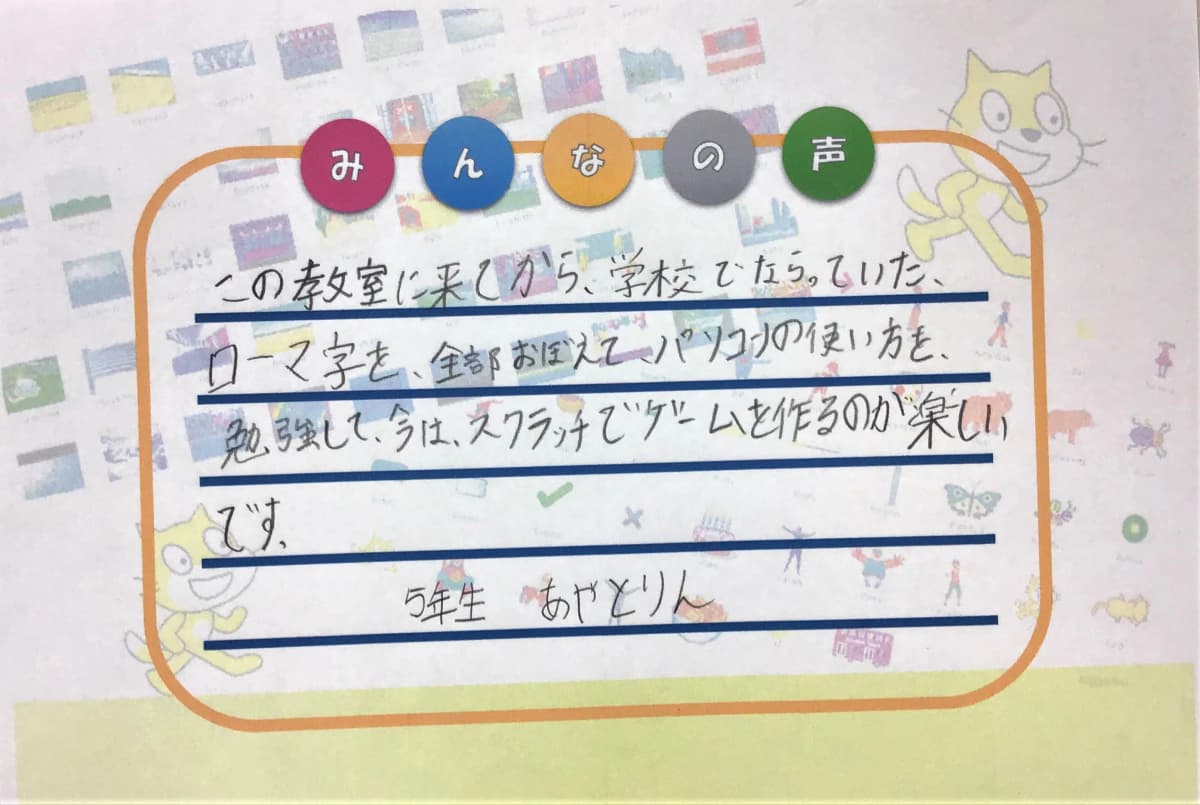 みんなの声
この教室に来てから、学校でならっていた、
ローマ字を、全部おぼえて、パソコンの使い方を、
勉強して、今は、スクラッチでゲームを作るのが楽しい
です。
5年生 あやとりん